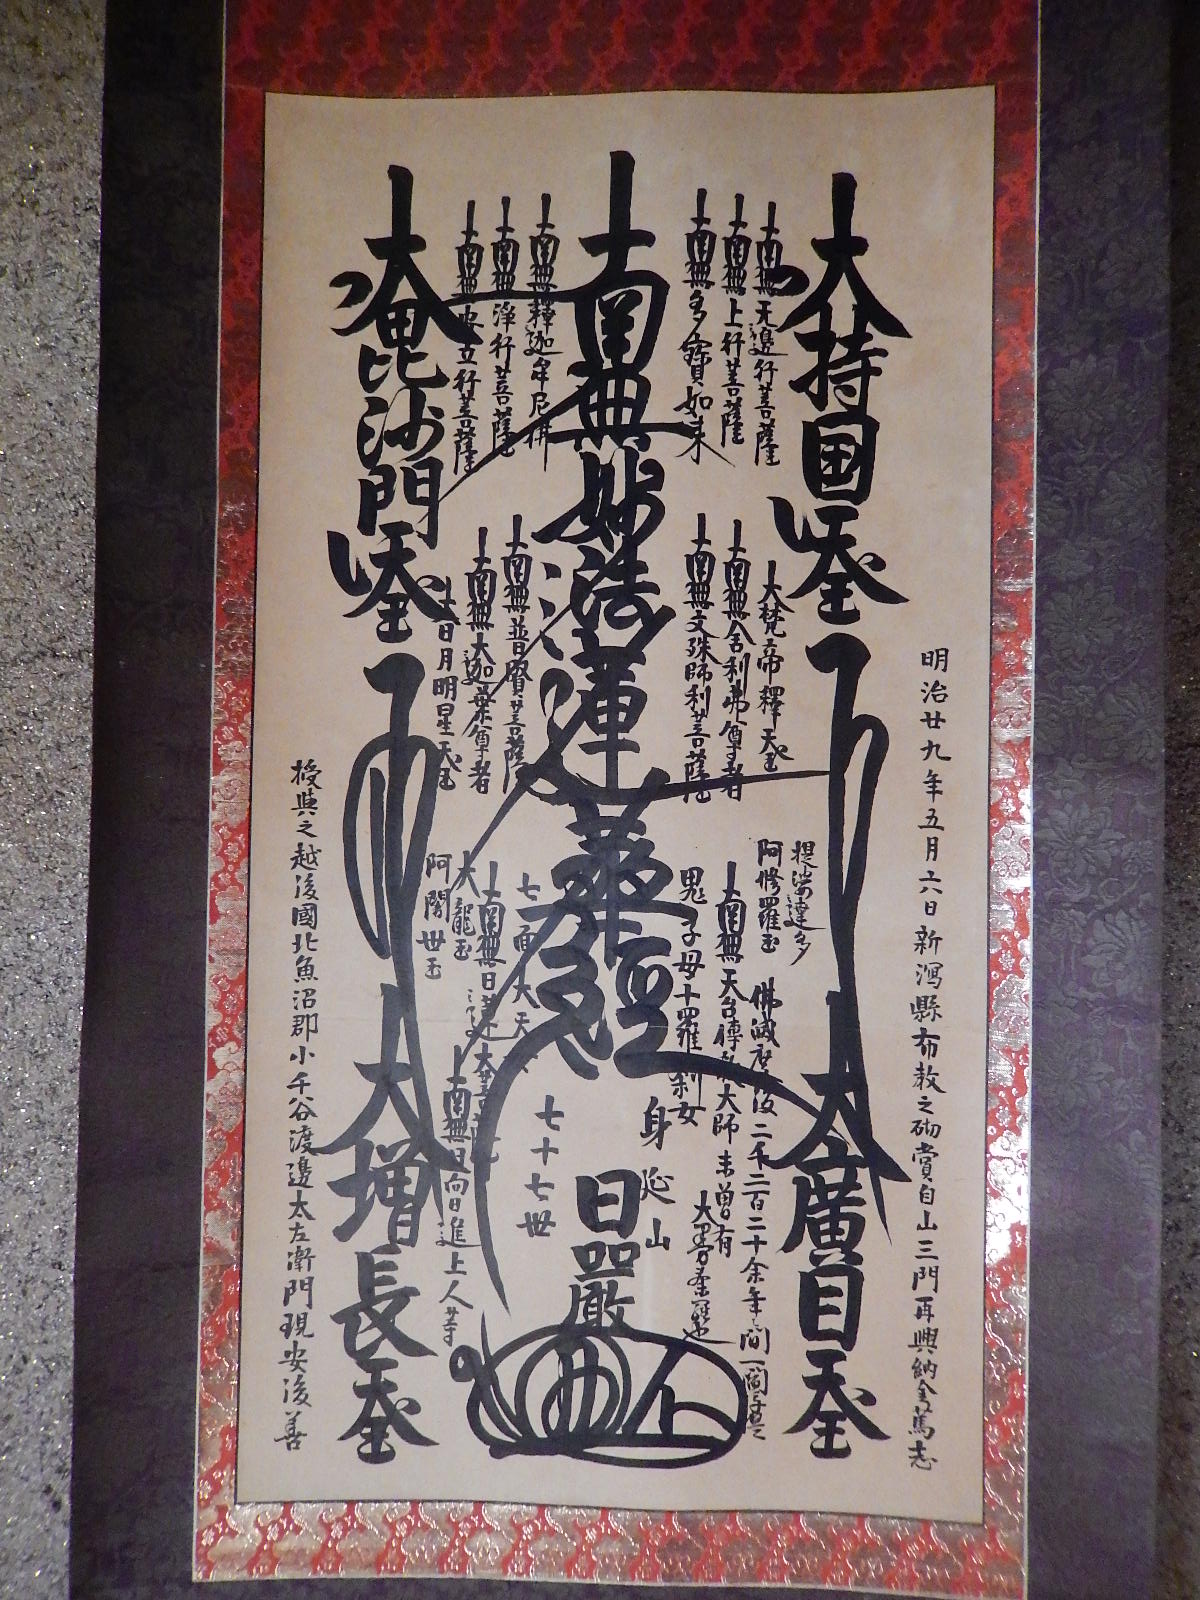 明治廿九年五月六日新潟縣布教之砌賞自山三門再興納金篤志
大持国天王
大廣目天王
南無无邊行菩薩
南無上行菩薩
南無多寶如来
大梵帝釋天王
南無舎利弗尊者
南無文殊師利菩薩
提婆達多
阿修羅王
佛滅度後二千二百二十余年之間一閻浮提之
南無天台傳教大師
未曽有
大曼荼羅也
鬼子母十羅刹女
身延山
南無妙法蓮華經
日嚴
七十七世
七面大天女
南無釋迦牟尼佛
南無淨行菩薩
南無安立行菩薩
南無普賢菩薩
南無大迦葉尊者
大日月明星天王
南無日蓮大菩薩
南無日向日進上人等
大龍王
阿闍世王
大毘沙門天王
大増長天王
授與之越後國北魚沼郡小千谷渡邊太左衛門現安後善